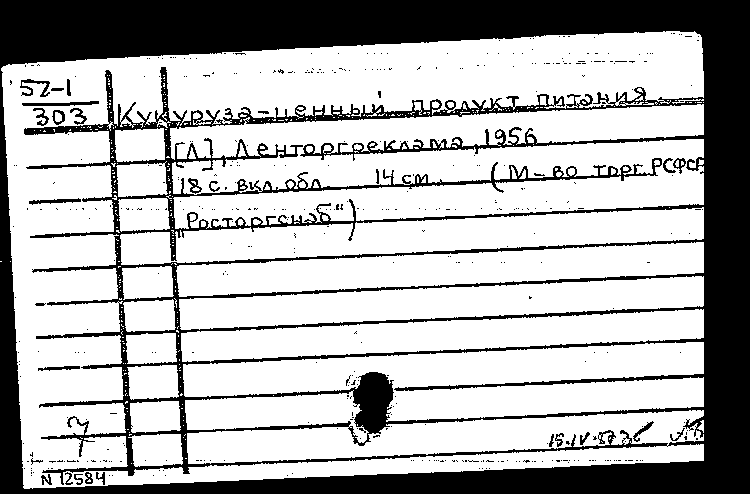 57-1
303
Кукуруза-ценный продукт питания.
[Л], Ленторгреклама, 1956
18 с. вкл. обл. 14 см. (М-во торг. РСФСР
„Росторгснаб“)
15.IV.57
N 12584